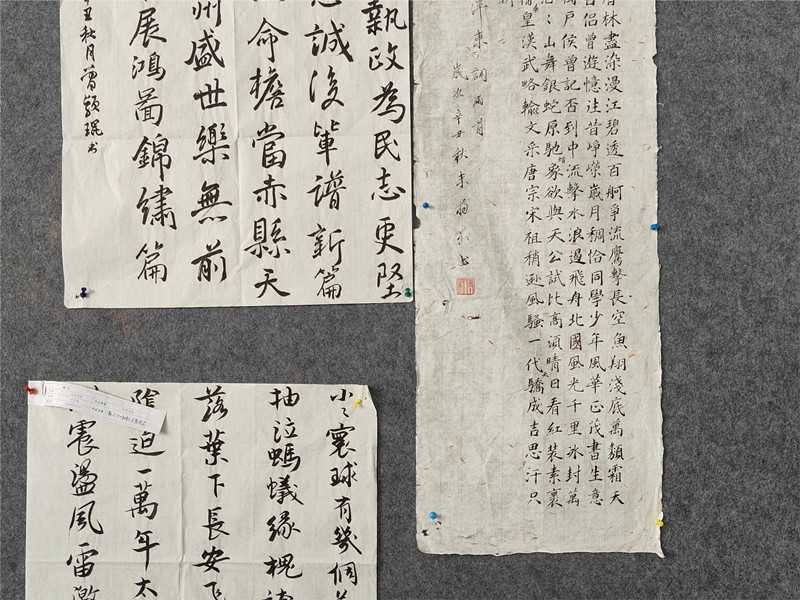 林盡染漫江碧透百舸爭流鷹擊長空魚翔淺底萬類霜天
侶曾遊憶往昔崢嶸歲月稠恰同學少年風華正茂書生意
戶侯曾記否到中流擊水浪遏飛舟北國風光千里冰封萬
山舞銀蛇原馳象欲與天公試比高須晴日看紅裝素裹
皇漢武略輸文采唐宗宋祖稍遜風騷一代驕成吉思汗只
澤東詞兩首
歲次辛丑秋朱
執政為民志更堅
誠後輩譜新篇
命檐當赤縣天
州盛世樂無前
展鴻圖錦繡篇
丑秋月曾 琨书
小〻寰球有幾個
抽泣螞蟻緣槐
落葉下長安飛
陰迫一萬年太
震盪風雷激